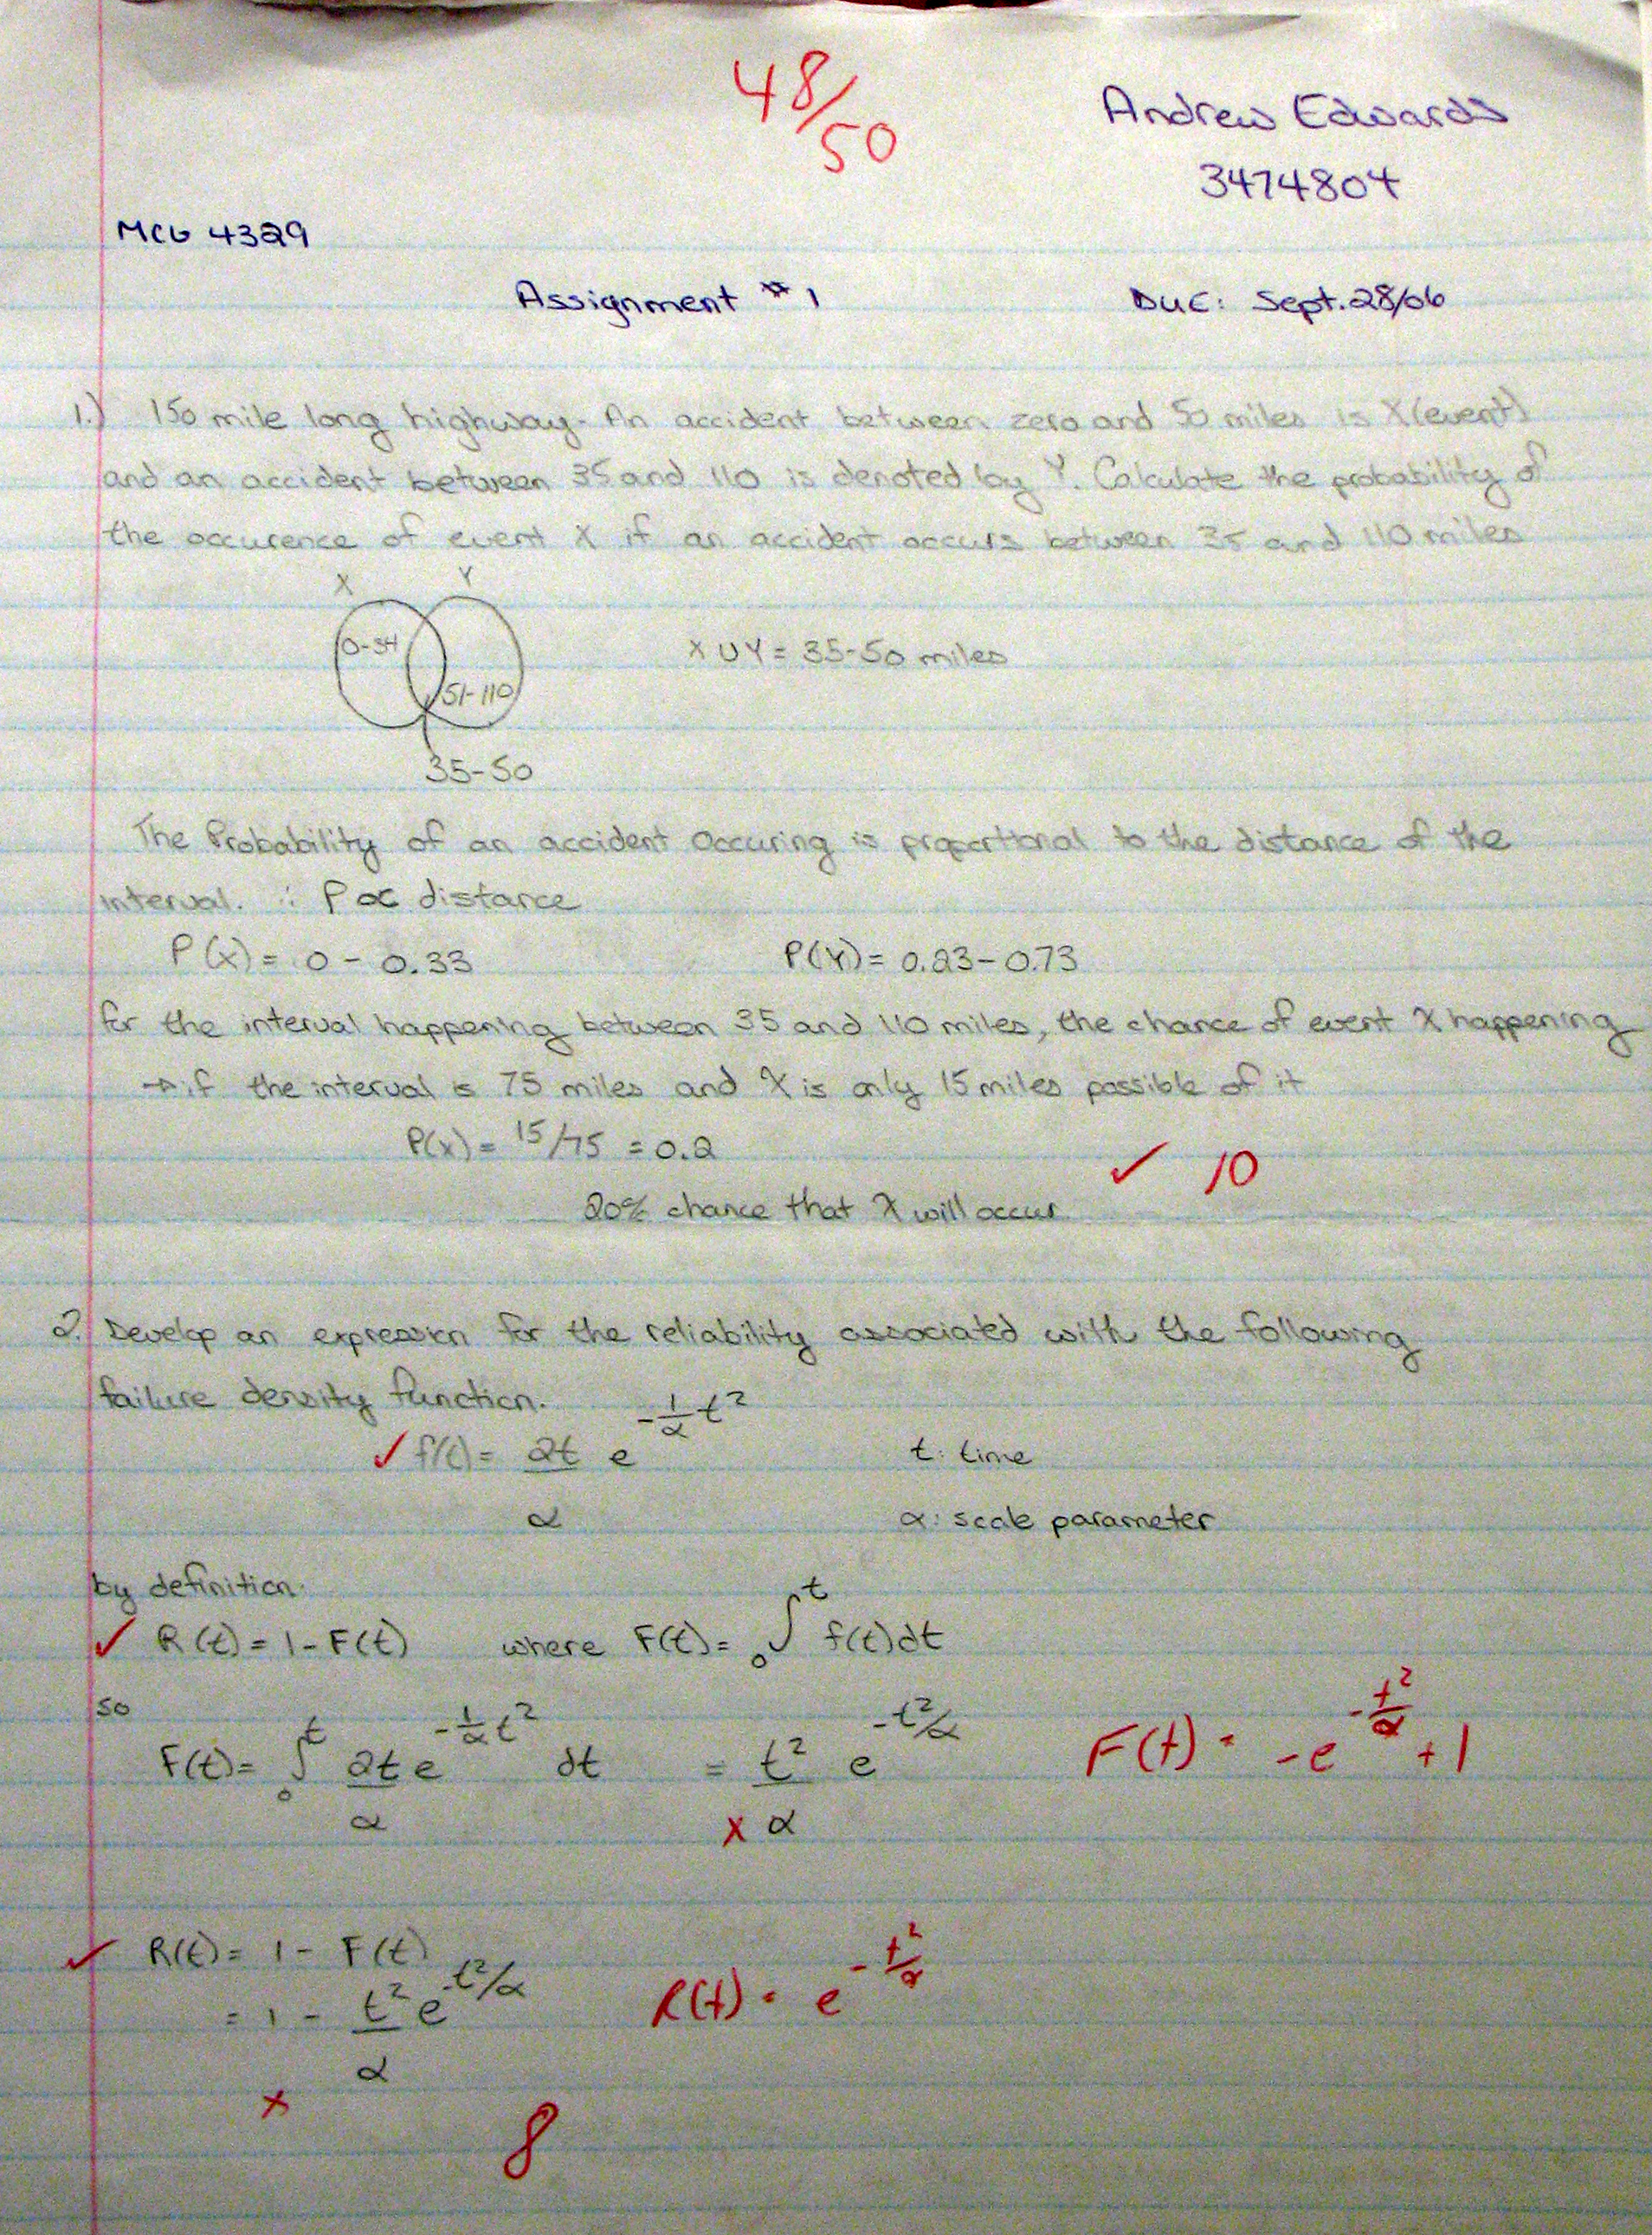 48/50
Andrew Edwards
3474804
MCG 4329
Assignment #1
Due: Sept. 28/06
1.) 150 mile long highway. An accident between zero and 50 miles is X (event)
and an accident between 35 and 110 is denoted by Y. Calculate the probability of
the occurence of event X if an accident occurs between 35 and 110 miles
X Y
0-34
X ∪ Y = 35-50 miles
51-110
35-50
The Probability of an accident occuring is proportional to the distance of the
interval. ∴ P ∝ distance
P(x) = 0 - 0.33 P(Y) = 0.23-0.73
for the interval happening between 35 and 110 miles, the chance of event X happening
→ if the interval is 75 miles and X is only 15 miles possible of it
P(x) = 15/75 = 0.2
✓ 10
20% chance that X will occur
2. Develop an expression for the reliability associated with the following
failure density function.
✓ f(t) = 2t/α e^(-1/α t²) t: time
α: scale parameter
by definition:
✓ R(t) = 1 - F(t) where F(t) = ₀∫ᵗ f(t)dt
so
F(t) = ₀∫ᵗ 2t/α e^(-1/α t²) dt = t²/α e^(-t²/α) F(t) = -e^(-t²/α) + 1
x
✓ R(t) = 1 - F(t)
= 1 - t²/α e^(-t²/α) R(t) = e^(-t²/α)
x
8